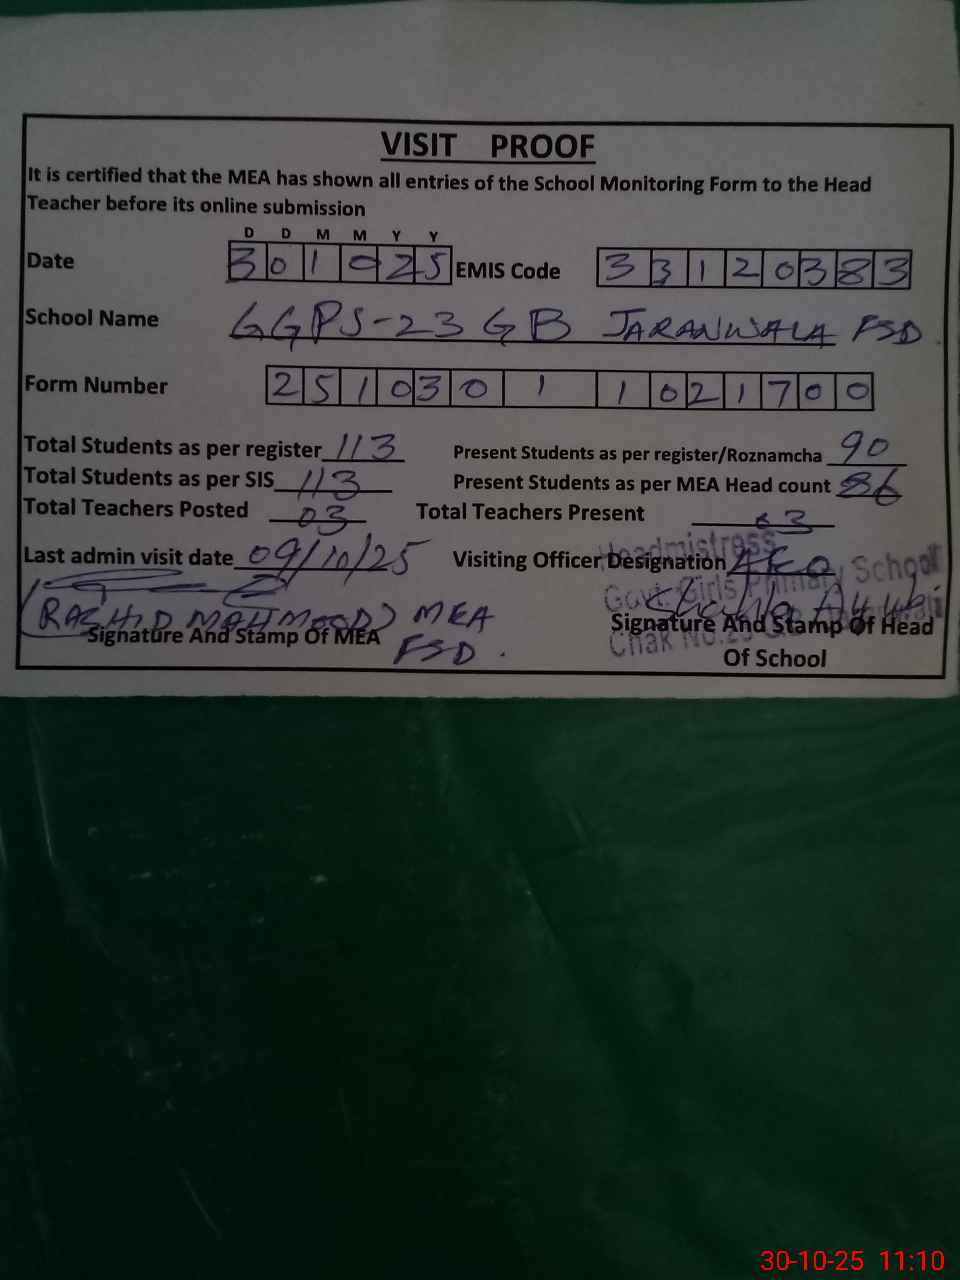 VISIT PROOF
It is certified that the MEA has shown all entries of the School Monitoring Form to the Head
Teacher before its online submission
D D M M Y Y
Date 3 0 1 0 2 5 EMIS Code 3 3 1 2 0 3 8 3
School Name GGPS-23 GB JARANWALA FSD.
Form Number 2 5 1 0 3 0 1 1 0 2 1 7 0 0
Total Students as per register 113 Present Students as per register/Roznamcha 90
Total Students as per SIS 113 Present Students as per MEA Head count 86
Total Teachers Posted 03 Total Teachers Present 03
Last admin visit date 09/10/25 Visiting Officer Designation AEO
Headmistress
Govt. Girls Primary School
Chak No.23
(RASHID MAHMOOD) MEA
FSD.
Signature And Stamp Of MEA
Signature And Stamp Of Head
Of School
30-10-25 11:10